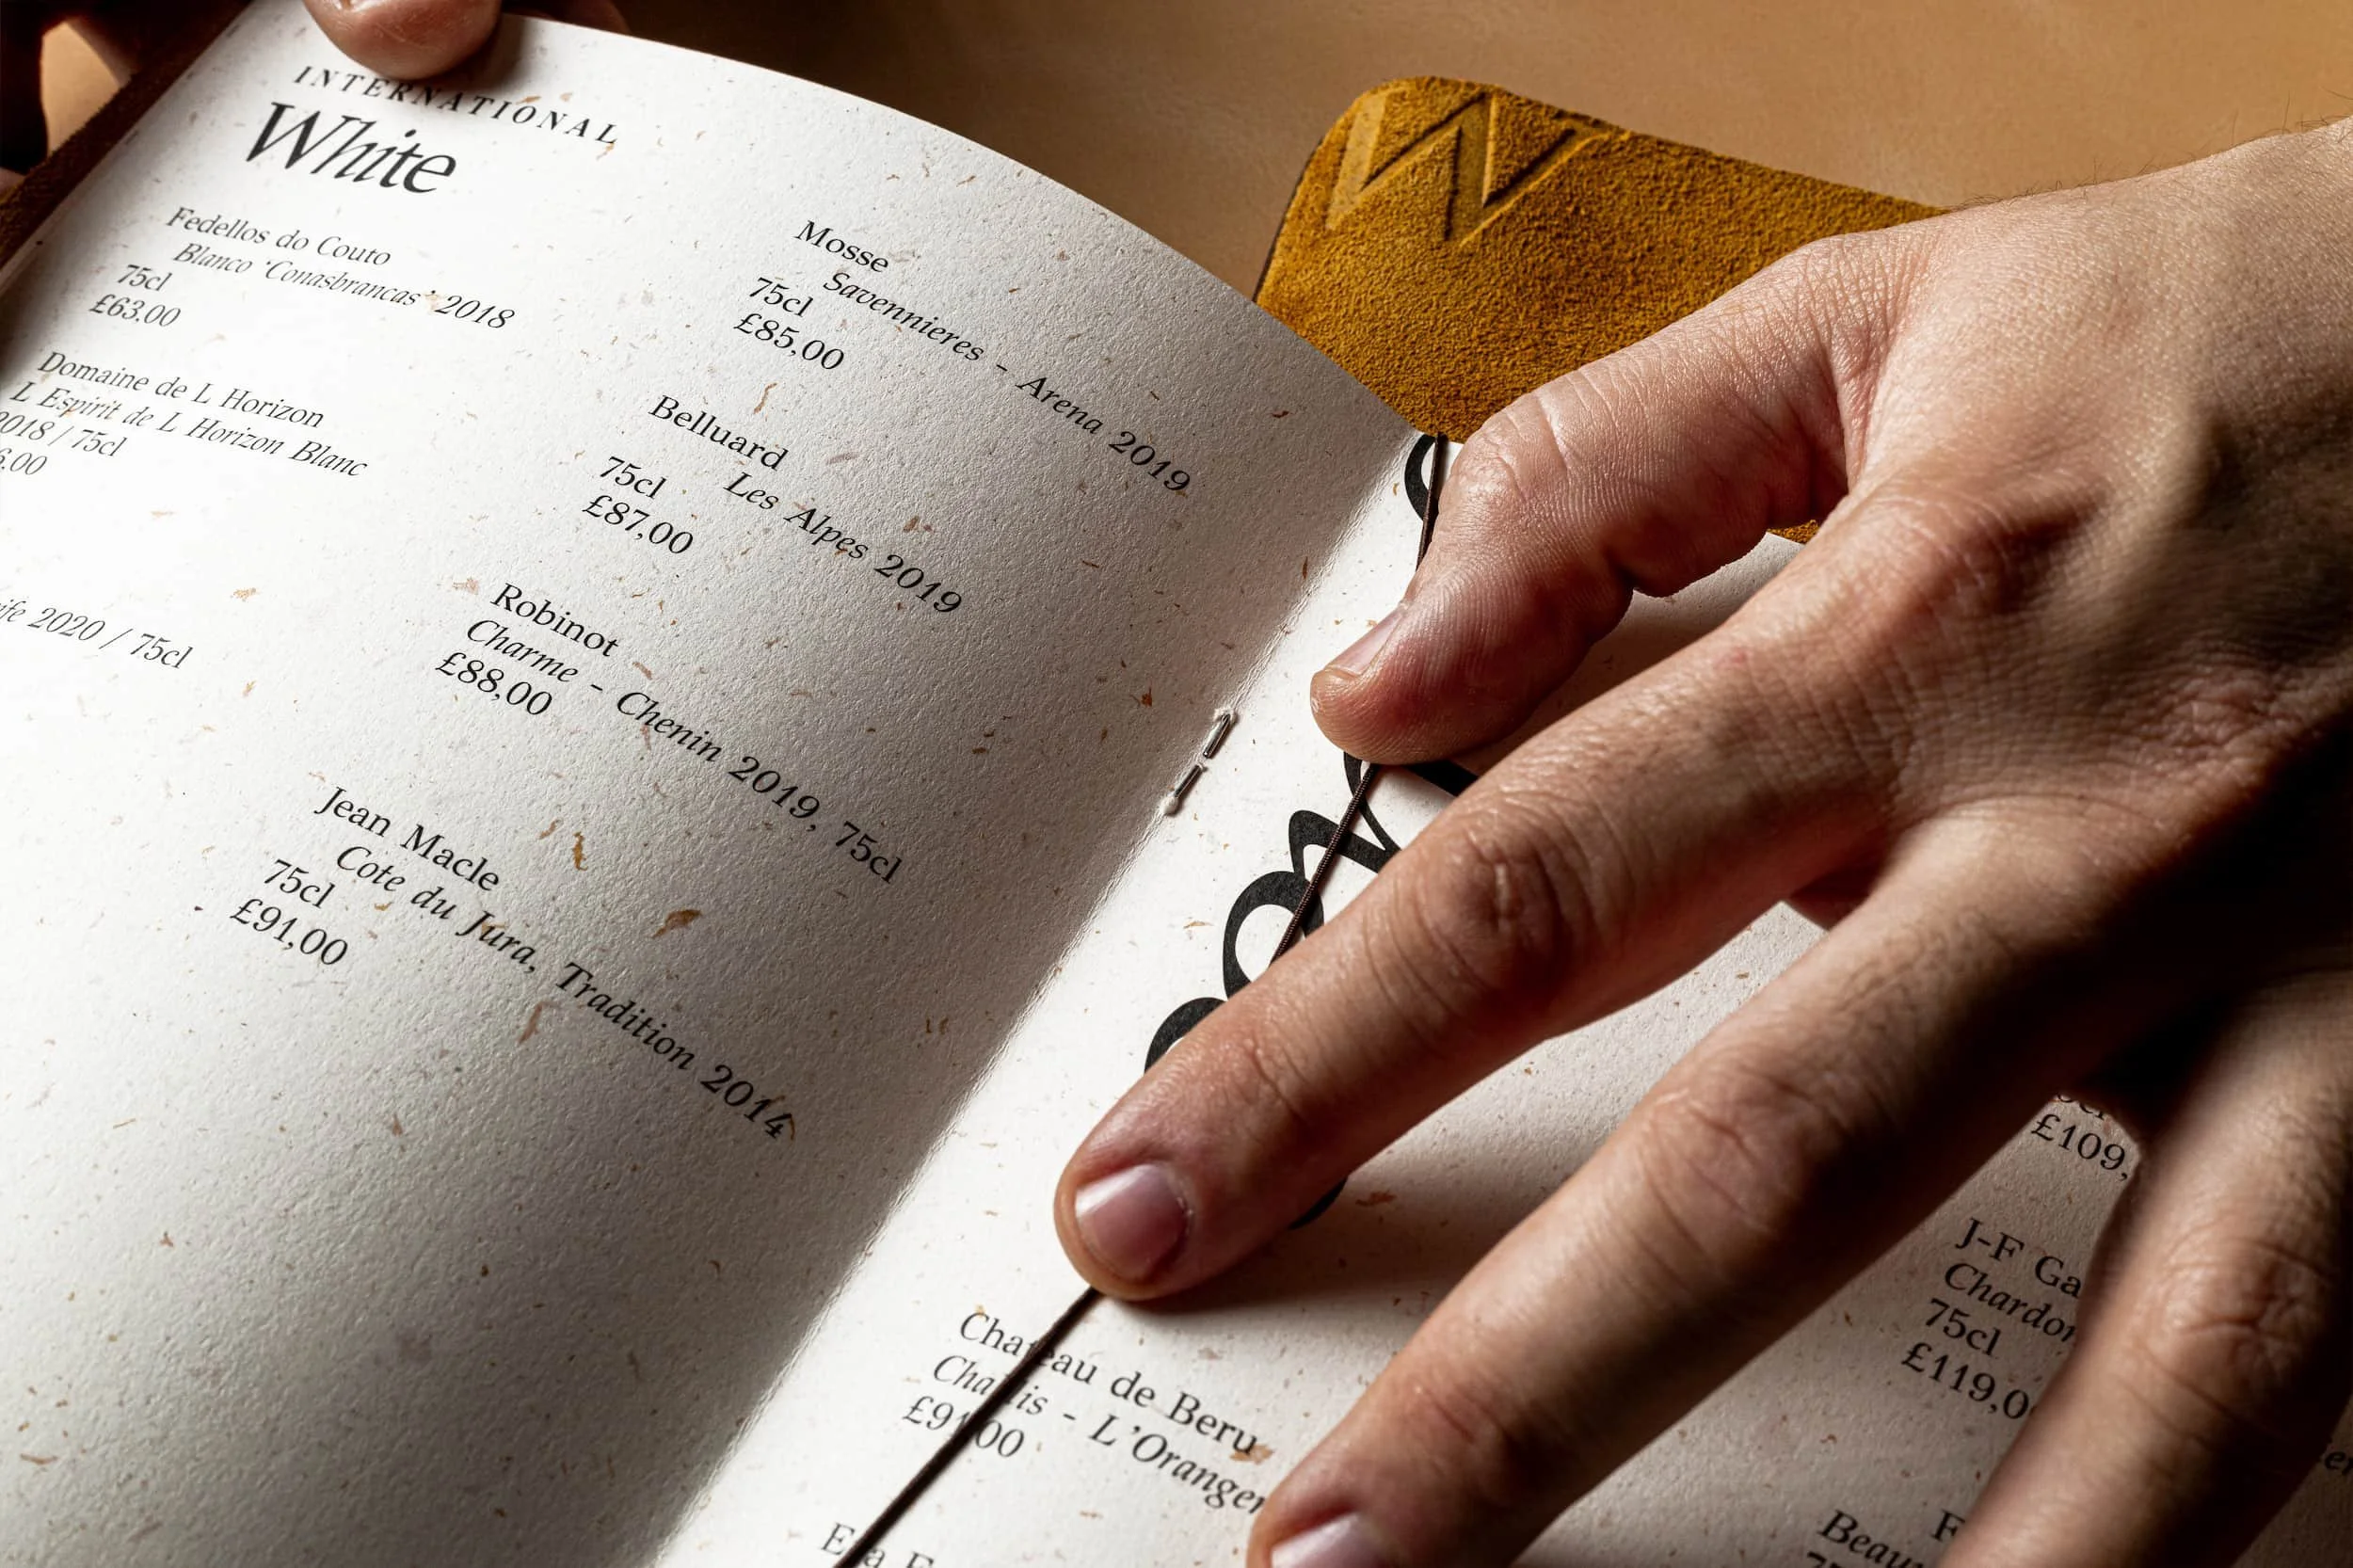 INTERNATIONAL
White
Fedellos do Couto
Blanco 'Conasbrancas' 2018
75cl
£63,00
Domaine de L Horizon
L Espirit de L Horizon Blanc
2018 / 75cl
2020 / 75cl
Mosse
Savennieres - Arena 2019
75cl
£85,00
Belluard
Les Alpes 2019
75cl
£87,00
Robinot
Charme - Chenin 2019, 75cl
£88,00
Jean Macle
Cote du Jura, Tradition 2014
75cl
£91,00
W
Chateau de Beru
Chablis - L'Oranger
£91,00
£109,
J-F
75cl
£119,0